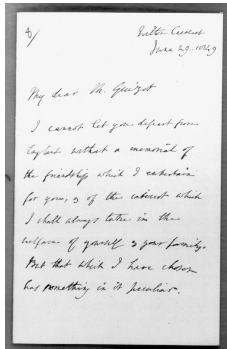 June 29. 1849
My dear M. Guizot
I cannot let you depart from
England without a memorial of
the friendship which I entertain
for you, & of the interest which
I shall always take in the
welfare of yourself & your family.
But that which I have chosen
has something in it peculiar.